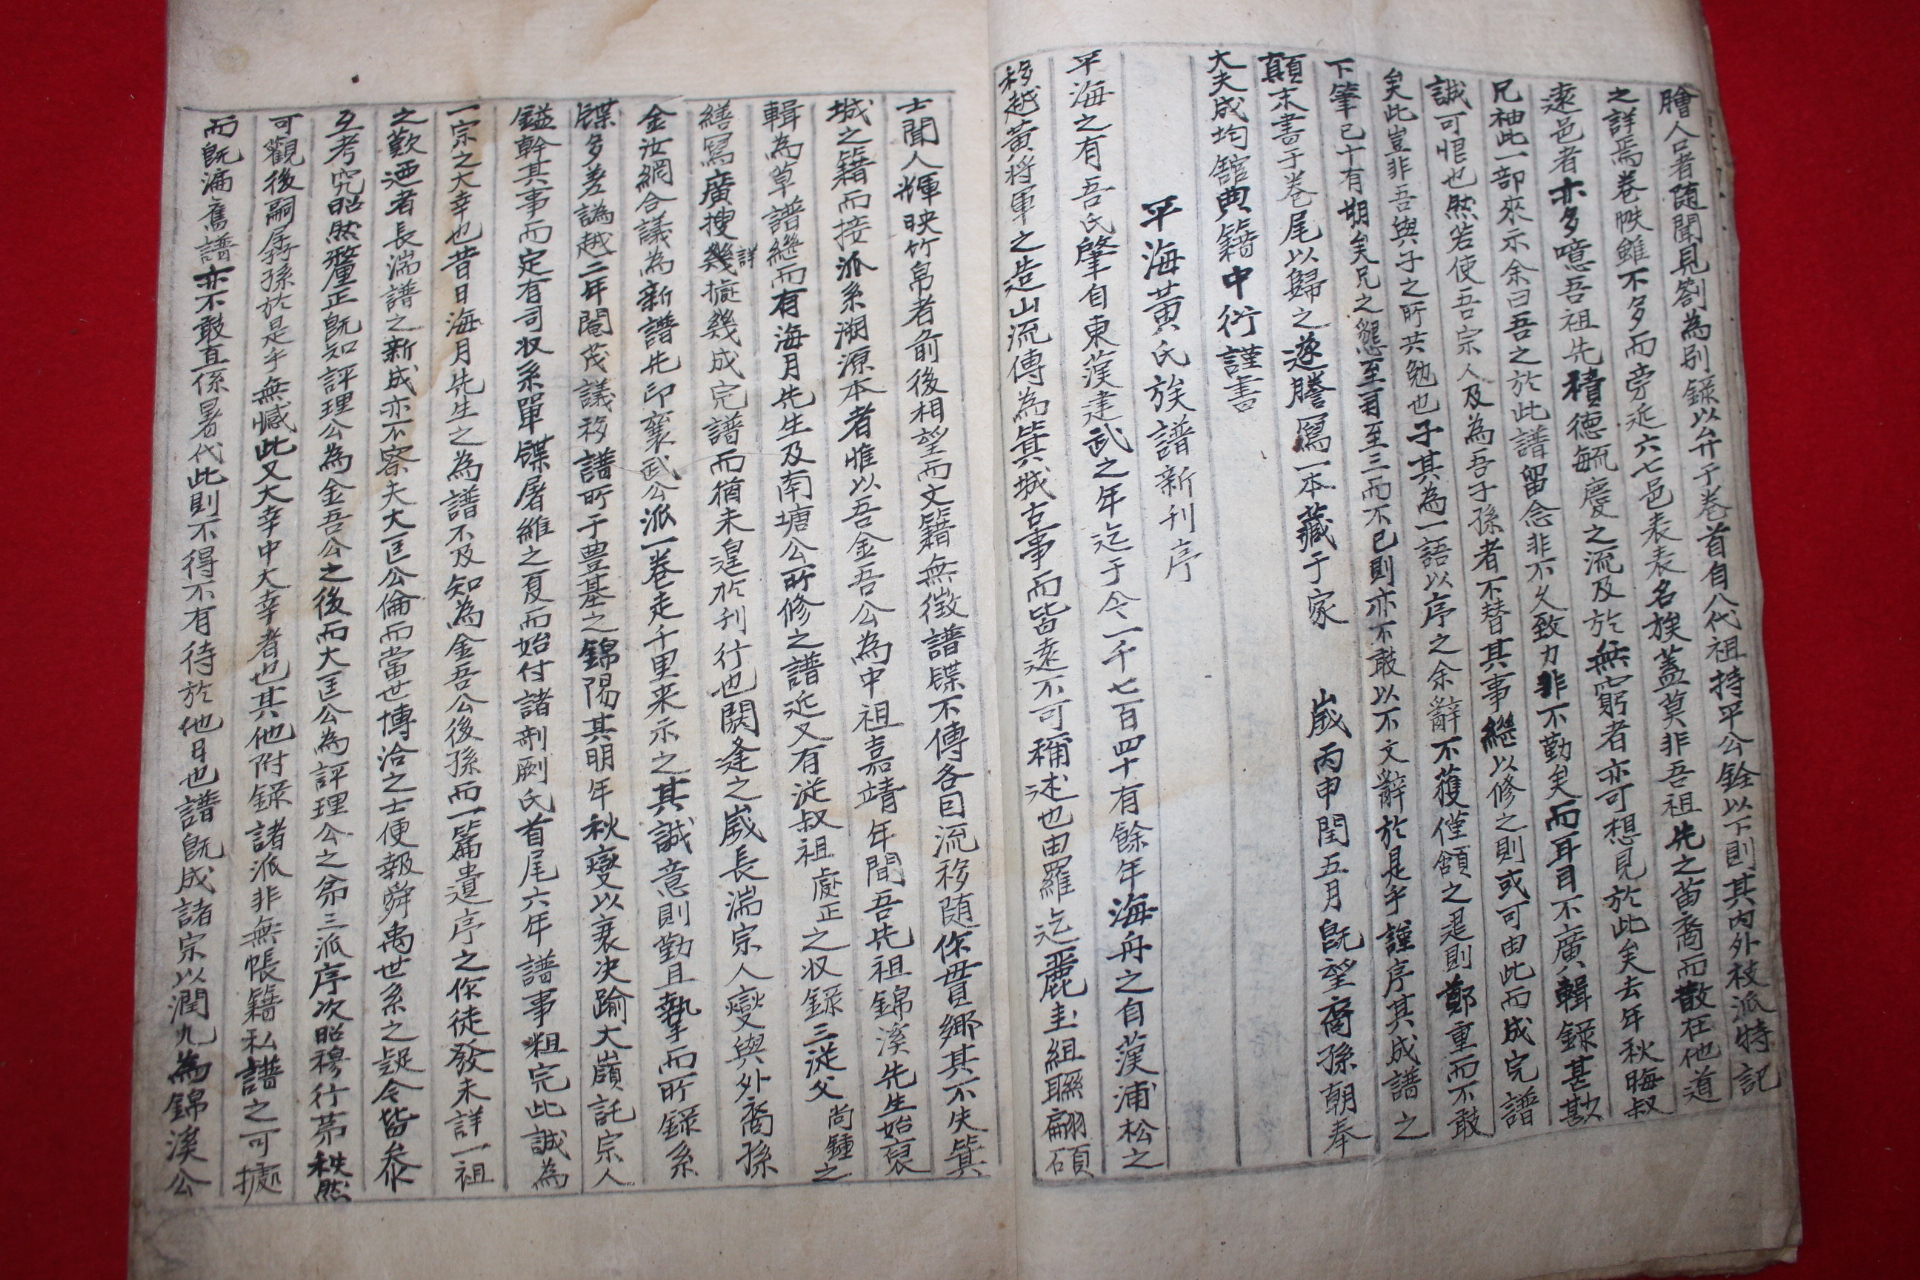 膾人口者随聞見劄為別録以弁于卷首自八代祖持平公銓以下則其內外枝派特記
之詳焉卷帙雖不多而旁近六七邑表表名族蓋莫非吾祖先之苗裔而散在他道
遠邑者亦多噫吾祖先積德毓慶之流及於無窮者亦可想見於此矣去年秋晦叔
兄袖此一部來示余曰吾之於此譜留念非不久致力非不勤矣而耳目不廣輯録甚欺
誠可恨也然若使吾宗人及為吾子孫者不替其事継以修之則或可由此而成完譜
矣此豈非吾與子之所共勉也子其為一語以序之余辭不獲僅頷之是則鄭重而不敢
下筆已十有期矣兄之懇至再至三而不已則亦不敢以不文辭於是乎謹序其成譜之
顛末書于卷尾以歸之遂謄寫一本藏于家 歲丙申閏五月既望裔孫朝奉
大夫成均舘典籍中衍謹書
平海黃氏族譜新刊序
平海之有吾氏肇自東漢建武之年迄于今一千七百四十有餘年海舟之自漢浦松之
移越黃將軍之造山流傳為箕城古事而皆遠不可稱述也由羅迄麗圭組聯翩碩
士聞人輝映竹帛者前後相望而文籍無徵譜牒不傳各自流移随作貫鄉其不失箕
城之籍而接派系溯源本者惟以吾金吾公為中祖嘉靖年間吾先祖錦溪先生始裒
輯為草譜継而有海月先生及南塘公所修之譜近又有從叔祖處正之収録三從父尚鍾之
繕寫廣搜幾詳擬幾成完譜而猶未遑於刊行也閼逢之歲長湍宗人燮與外裔孫
金汝綱合議為新譜先印襄武公派一卷走千里来示之其誠意則勤且摯而所録系
牒多差譌越二年閹茂議移譜所于豊基之錦陽其明年秋燮以衰决踰大嶺託宗人
鎰幹其事而定有司収系單牒屠維之夏而始付諸剞劂氏首尾六年譜事粗完此誠為
一宗之大幸也昔日海月先生之為譜不及知為金吾公後孫而一篇遺序之作徒發未詳一祖
之歎迺者長湍譜之新成亦不察夫大匡公倫而當世博洽之士便報舜禹世系之疑今皆叅
互考究昭然釐正既知評理公為金吾公之後而大匡公為評理公之弟三派序次昭穆行第秩然
可觀後嗣孱孫於是乎無憾此又大幸中大幸者也其他附録諸派非無帳籍私譜之可據
而既漏舊譜亦不敢直係曷代此則不得不有待於他日也譜既成諸宗以潤九為錦溪公